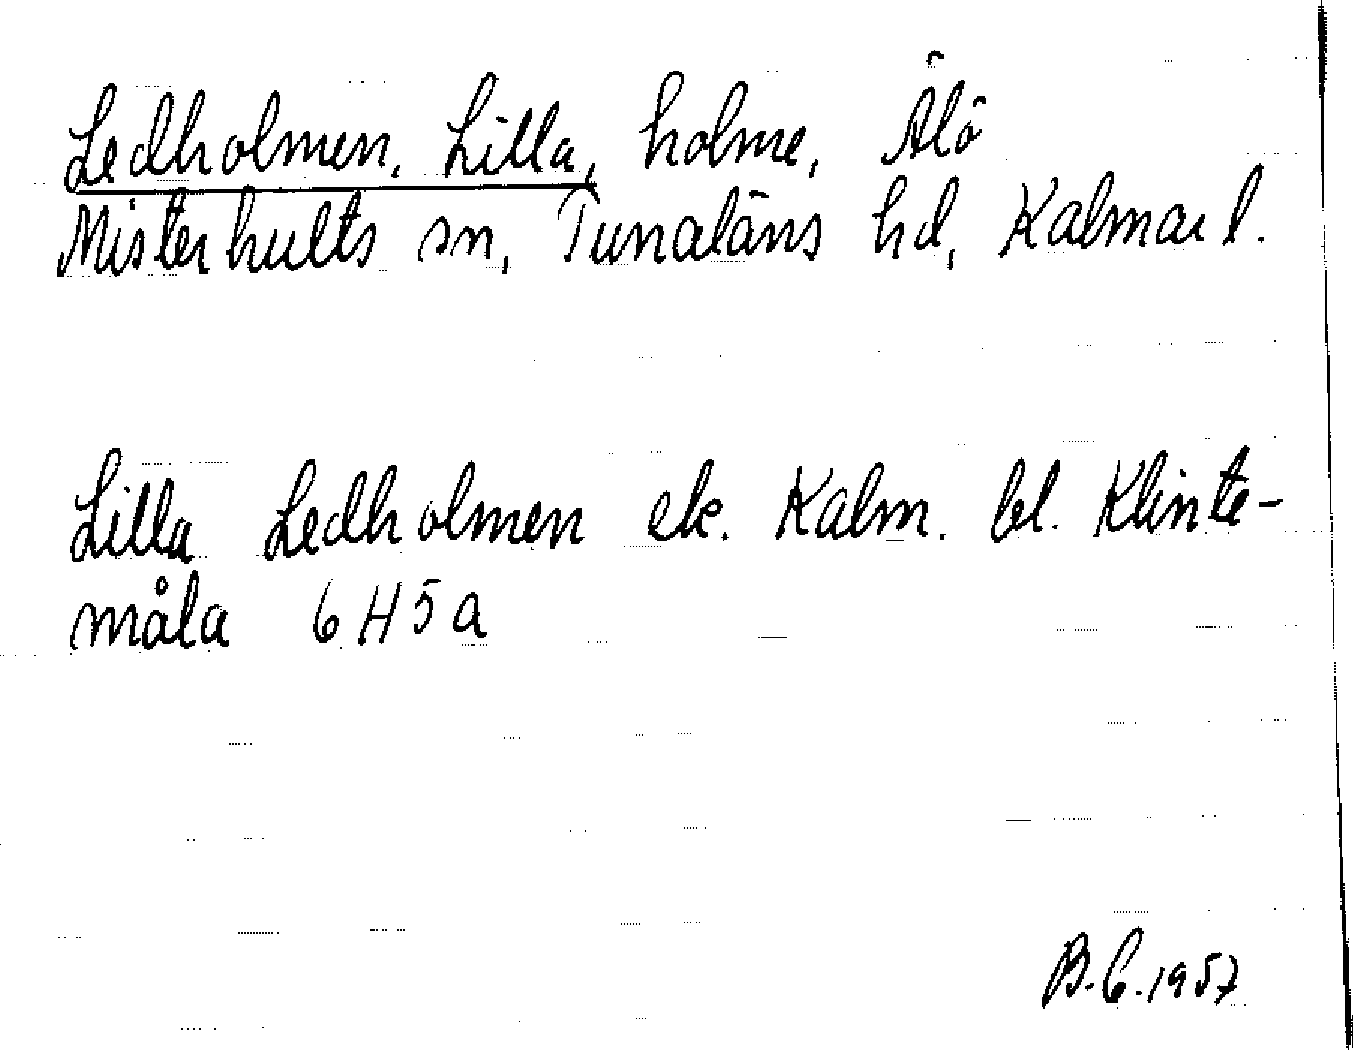 Ledholmen, Lilla, holme, Älö
Misterhults sn, Tunaläns hd, Kalmar l.
Lilla Ledholmen ek. Kalm. bl. Klinte-
måla 6 H 5 a
B.C. 1957